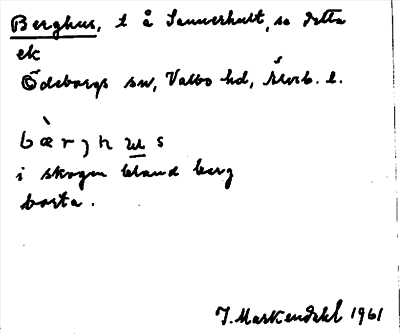 Berghus, t å Sannerhult, se detta
ek
Ödeborgs sn, Valbo hd, Älvsb. l.
bæ̀rjhus
i skogen bland berg
borta.
J. Markendahl 1961